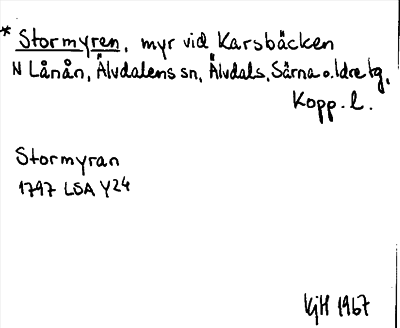 * Stormyren, myr vid Karsbäcken
N Lånån, Älvdalens sn, Älvdals, Särna o. Idre tg,
Kopp. l.
Stormyran
1797 LSA Y24
KjH 1967